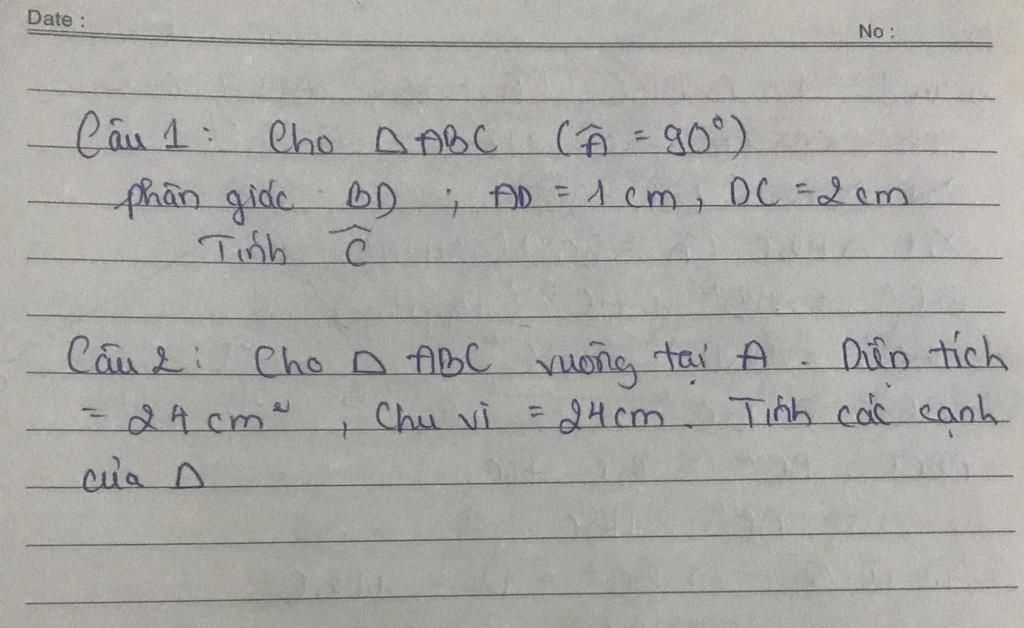 Date :
No :
Câu 1 : Cho Δ ABC (Â = 90°)
phân giác BD ; AD = 1 cm, DC = 2 cm
Tính Ĉ
Câu 2 : Cho Δ ABC vuông tại A. Diện tích
= 24 cm², Chu vi = 24 cm. Tính các cạnh
của Δ